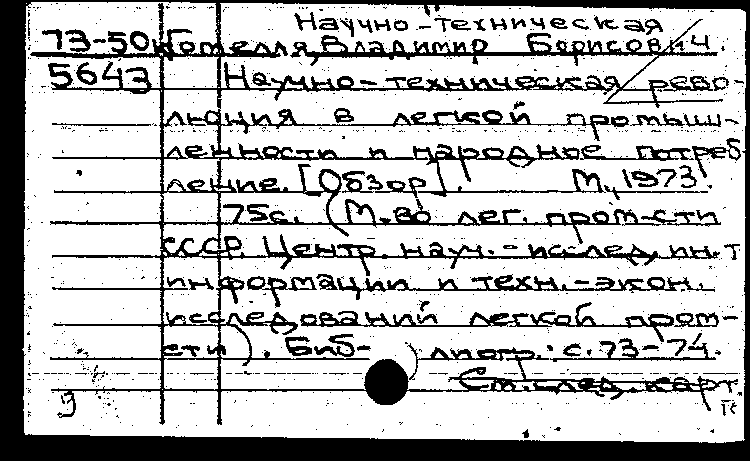 Научно-техническая
73-50 Гомелля, Владимир Борисович.
5643 Научно-техническая рево-
люция в легкой промыш-
ленности и народное потреб-
ление. [Обзор]. М., 1973.
75с. (М-во лег. пром-сти
СССР. Центр. науч.-исслед. ин-т
информации и техн.-экон.
исследований легкой пром-
сти). Библиогр.: с. 73-74.
См. след. карт.